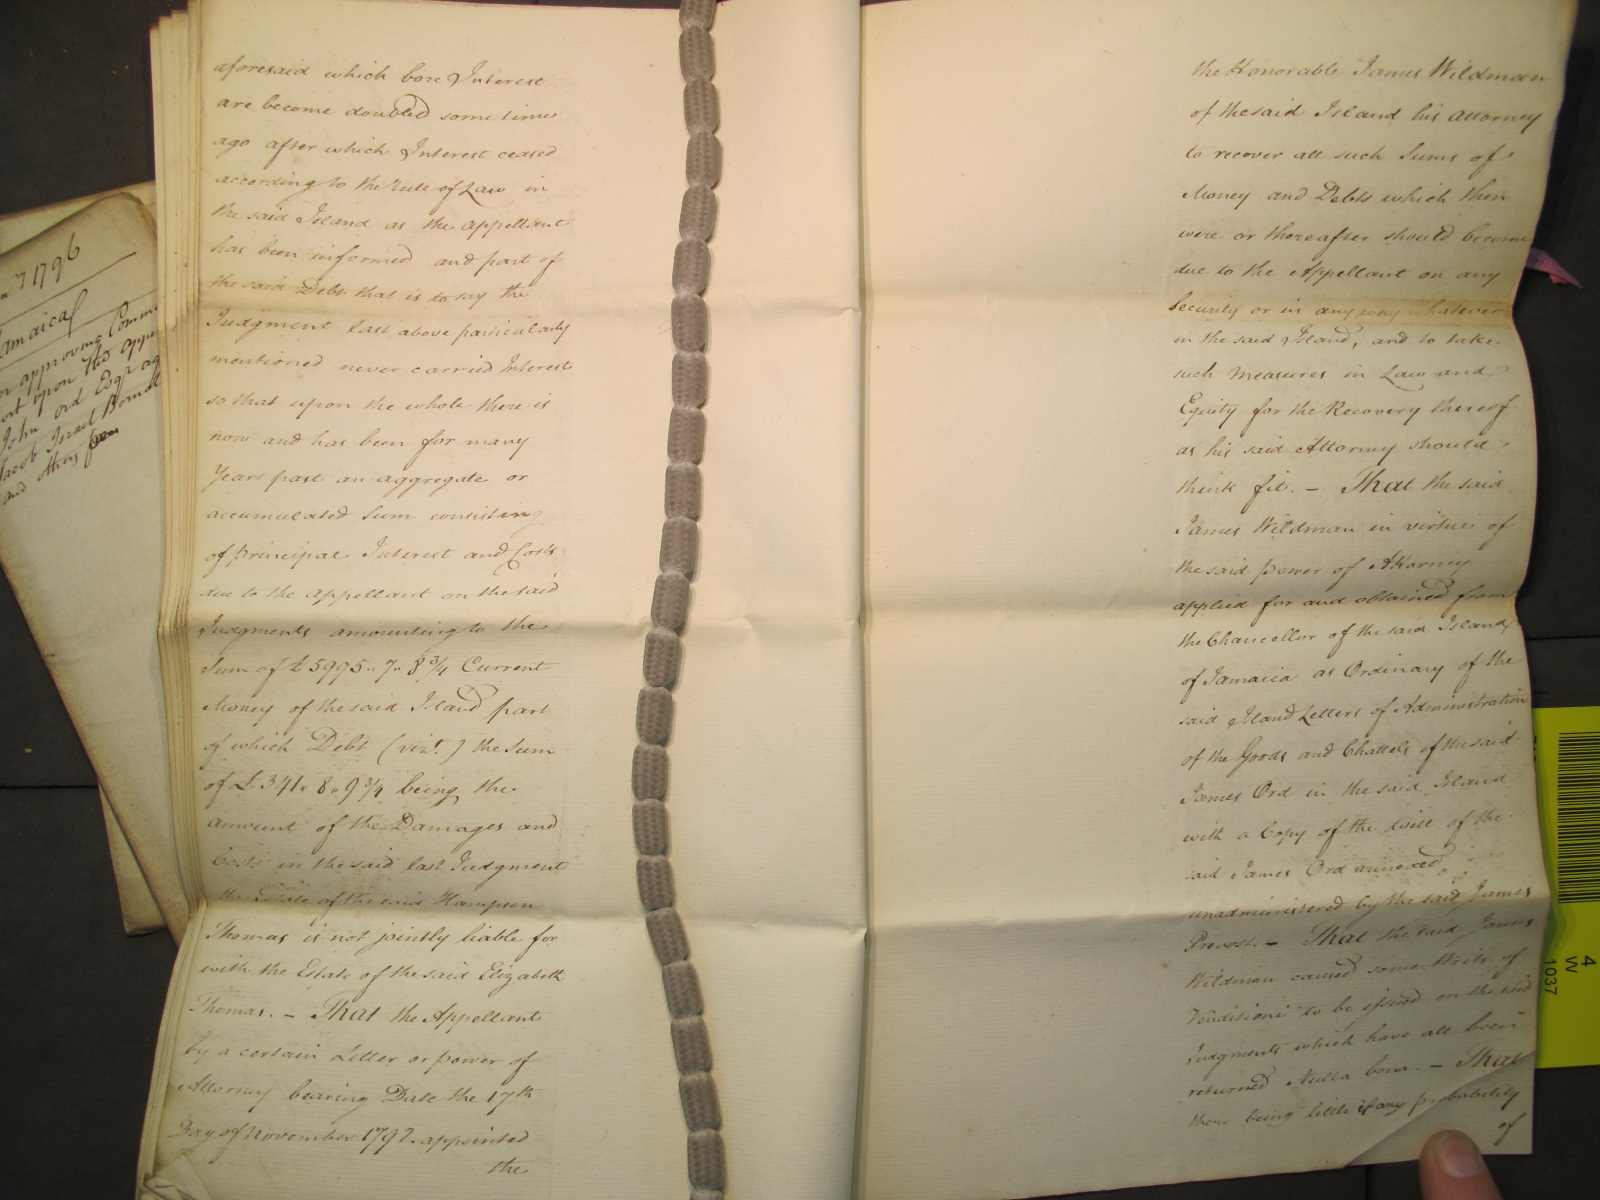 aforesaid which bore Interest
are become doubled some time
ago after which Interest ceased
according to the Rule of Law in
the said Island as the appellant
has been informed and part of
the said Debt that is to say the
Judgment last above particularly
mentioned never carried Interest
so that upon the whole there is
now and has been for many
Years past an aggregate or
accumulated Sum consisting
of Principal Interest and Costs
due to the appellant on the said
Judgments amounting to the
Sum of £5995.. 7.. 8 3/4 Current
Money of the said Island part
of which Debt (vizt.) the Sum
of £341. 8.. 9 3/4 being the
amount of the Damages and
Costs in the said last Judgment
the Estate of the said Hampson
Thomas is not jointly liable for
with the Estate of the said Elizabeth
Thomas. – That the Appellant
by a certain Letter or power of
Attorney bearing Date the 17th
Day of November 1792 appointed
the
the Honorable James Wildman
of the said Island his attorney
to recover all such Sums of
Money and Debts which then
were or thereafter should become
due to the Appellant on any
Security or in any way whatever
in the said Island, and to take
such Measures in Law and
Equity for the Recovery thereof
as his said Attorney should
think fit. – That the said
James Wildman in virtue of
the said power of Attorney
applied for and obtained from
the Chancellor of the said Island
of Jamaica as Ordinary of the
said Island Letters of Administration
of the Goods and Chattels of the said
James Ord in the said Island
with a Copy of the Will of the
said James Ord annexed
unadministered by the said James
Prevost. – That the said James
Wildman caused some Writs of
Venditioni to be issued on the said
Judgments which have all been
returned Nulla bona. – That
there being little if any probability
of
1796
Jamaica
approving Comm
upon the appe
John Ord Esqr ag
Jacob Israel Bernal
and others
4
W
1037